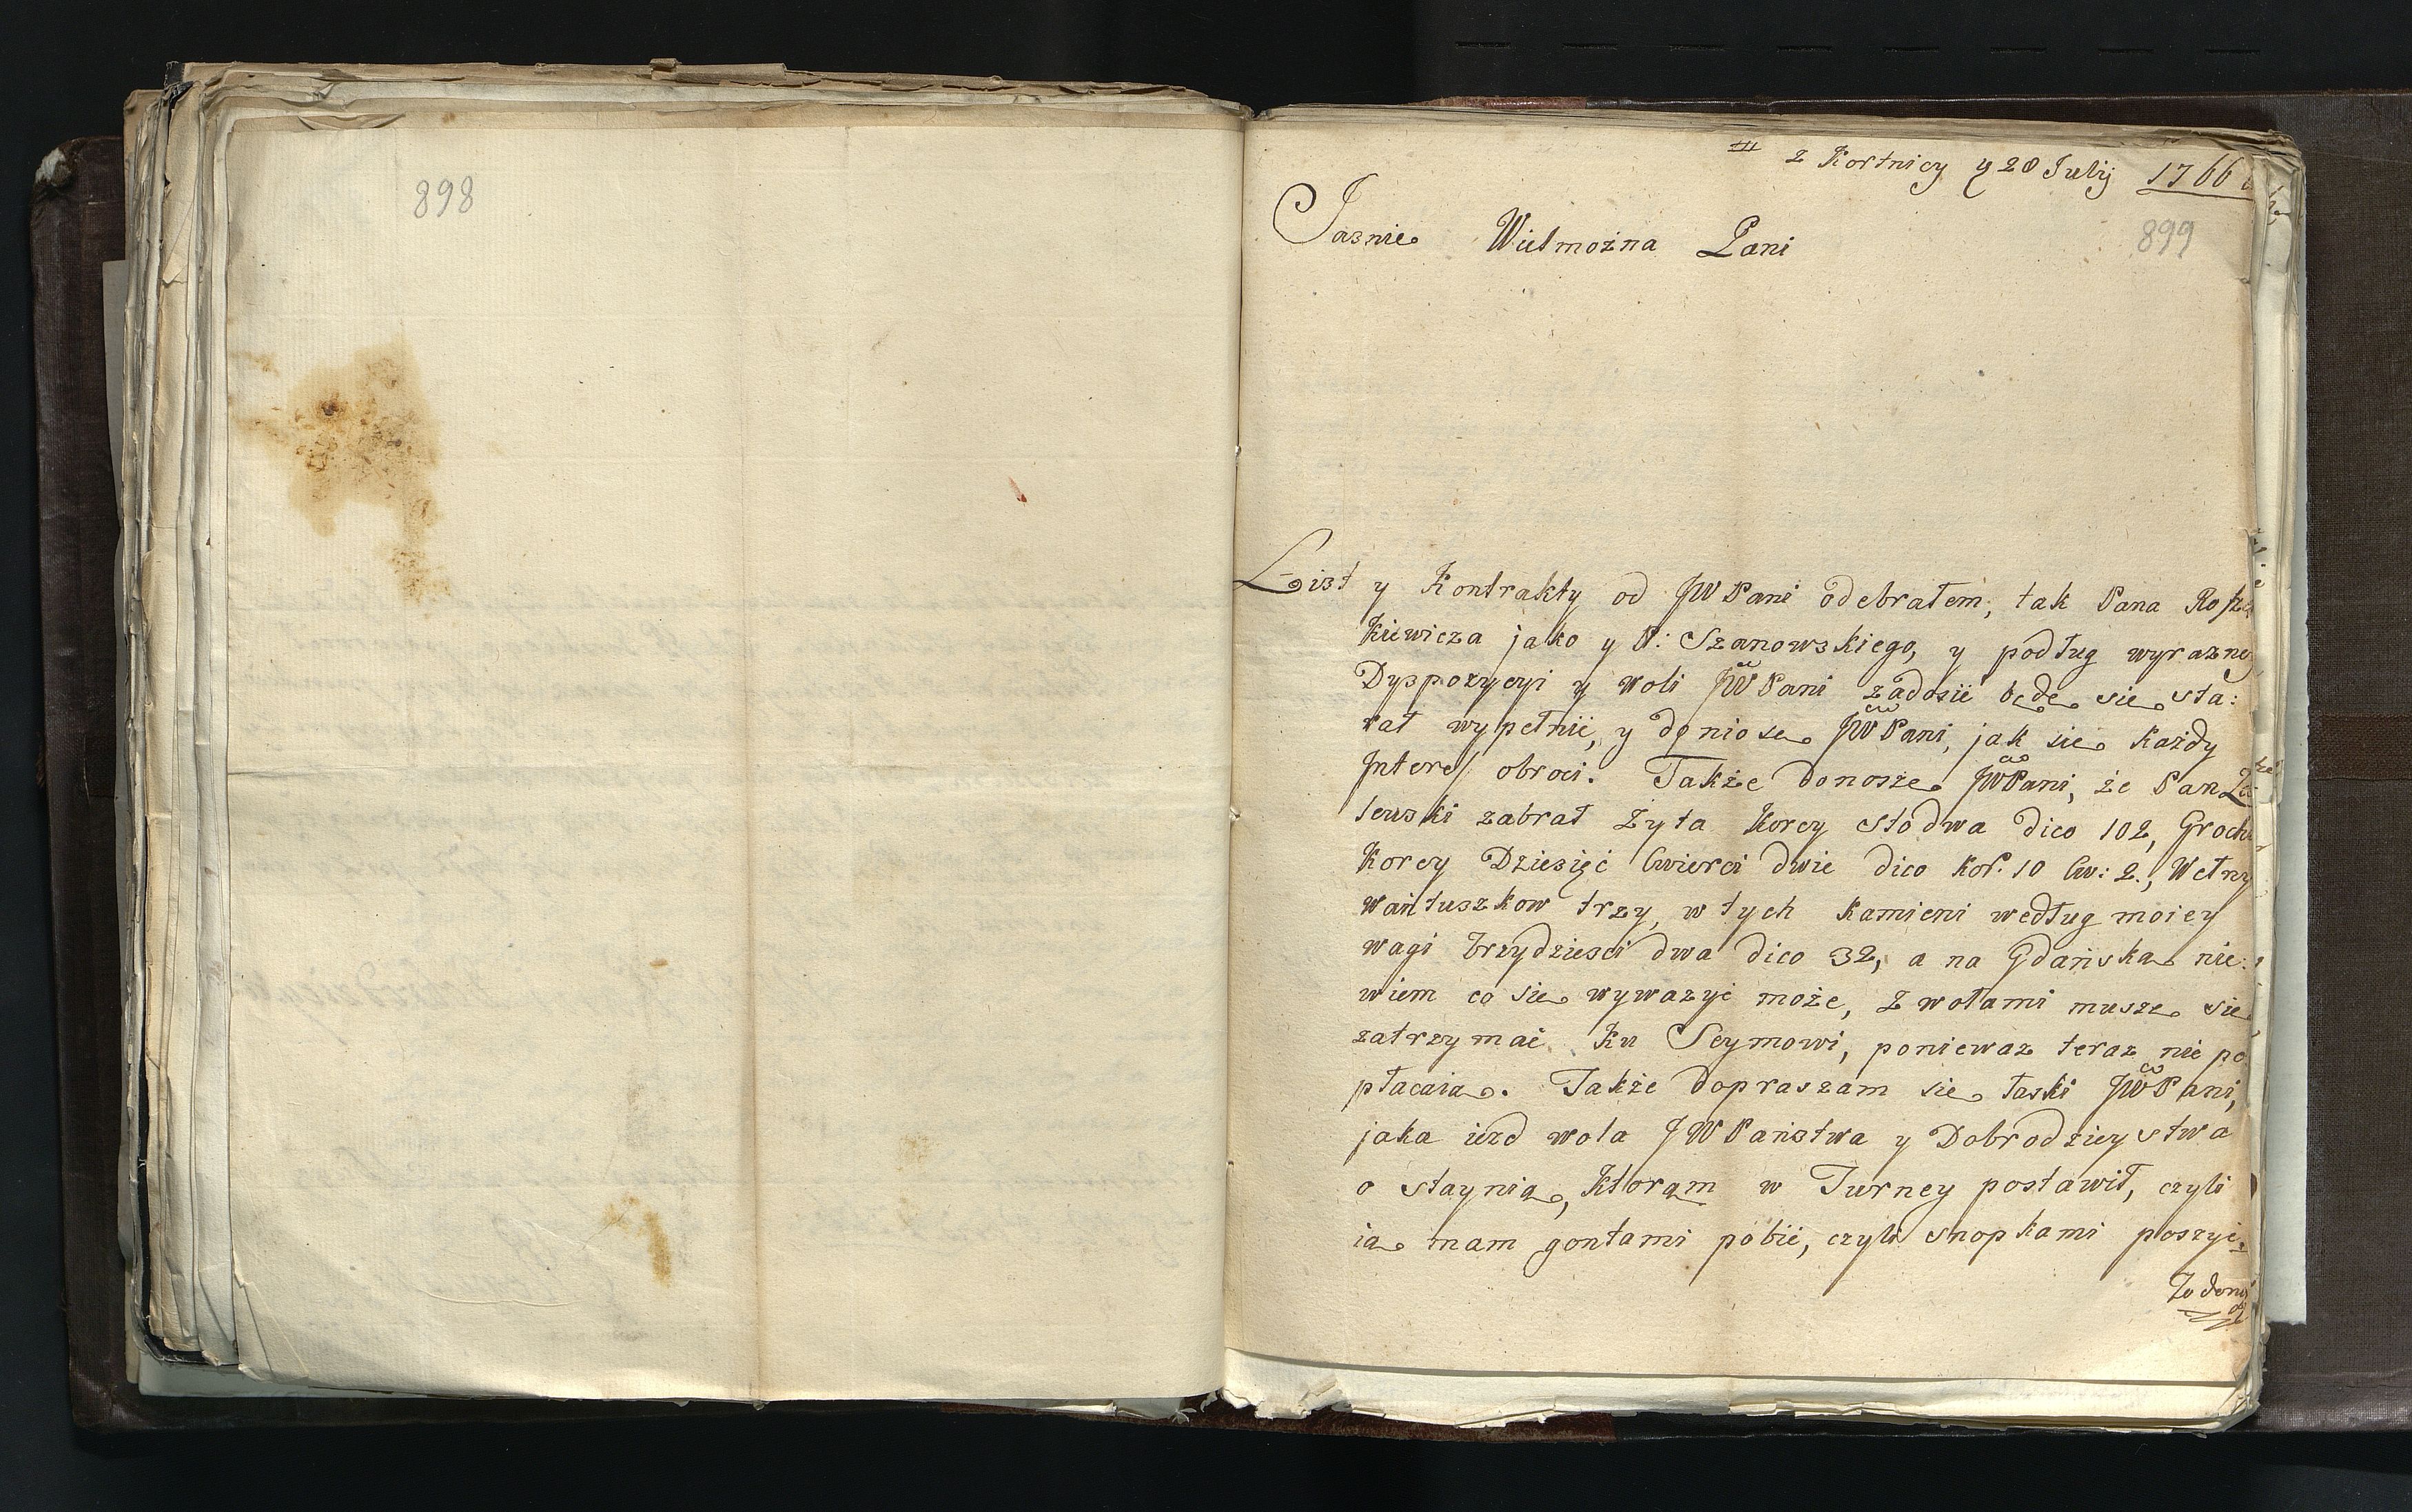 898
z Kortnicy y 20 Julij 1766
899
Jasnie Wielmożna Pani
List y Kontrakty od JWPani odebrałem, tak Pana
Kiewicza jako y P: Szanowskiego, y podług wyrazney
Dyspozycyi y woli JWPani zadosić będę się sta:
rał wypełnić, y doniosę JWPani, jak się każdy
Interess obroci. Także donoszę JWPani, że Pan
lewski zabrał Zyta Korcy sto dwa dico 102, Grochu
Korcy Dziesięć Cwierci dwie dico Kor. 10 Cw: 2., Wełny
wańtuszkow trzy, w tych kamieni według moiey
wagi trzydziesci dwa dico 32, a na Gdańska nie:
wiem co się wywazyć może, z wołami muszę się
zatrzymać ku Seymowi, poniewaz teraz nie po
płacaią. Także dopraszam się łaski JWPani,
jaka iezd wola JWPaństwa y Dobrodzieystwa
o staynią, ktorąm w Turney postawił, czyli
ią mam gontami pobić, czyli snopkami poszyć